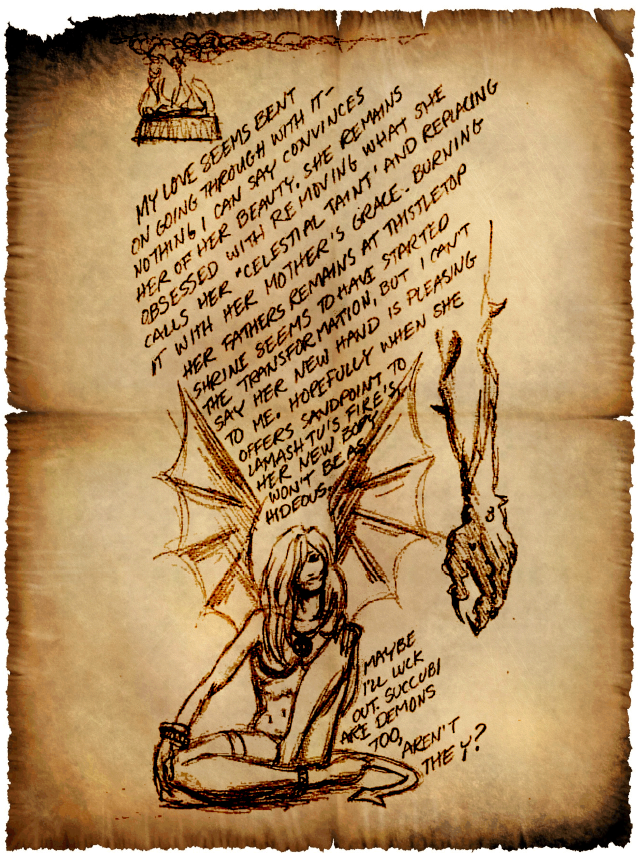 MY LOVE SEEMS BENT
ON GOING THROUGH WITH IT-
NOTHING I CAN SAY CONVINCES
HER OF HER BEAUTY. SHE REMAINS
OBSESSED WITH REMOVING WHAT SHE
CALLS HER "CELESTIAL TAINT' AND REPLACING
IT WITH HER MOTHER'S GRACE. BURNING
HER FATHERS REMAINS AT THISTLETOP
SHRINE SEEMS TO HAVE STARTED
THE TRANSFORMATION, BUT I CAN'T
SAY HER NEW HAND IS PLEASING
TO ME. HOPEFULLY WHEN SHE
OFFERS SANDPOINT TO
LAMASHTU'S FIRE'S,
HER NEW BODY
WON'T BE AS
HIDEOUS..
MAYBE
I'LL LUCK
OUT. SUCCUBI
ARE DEMONS
TOO, AREN'T
THEY?